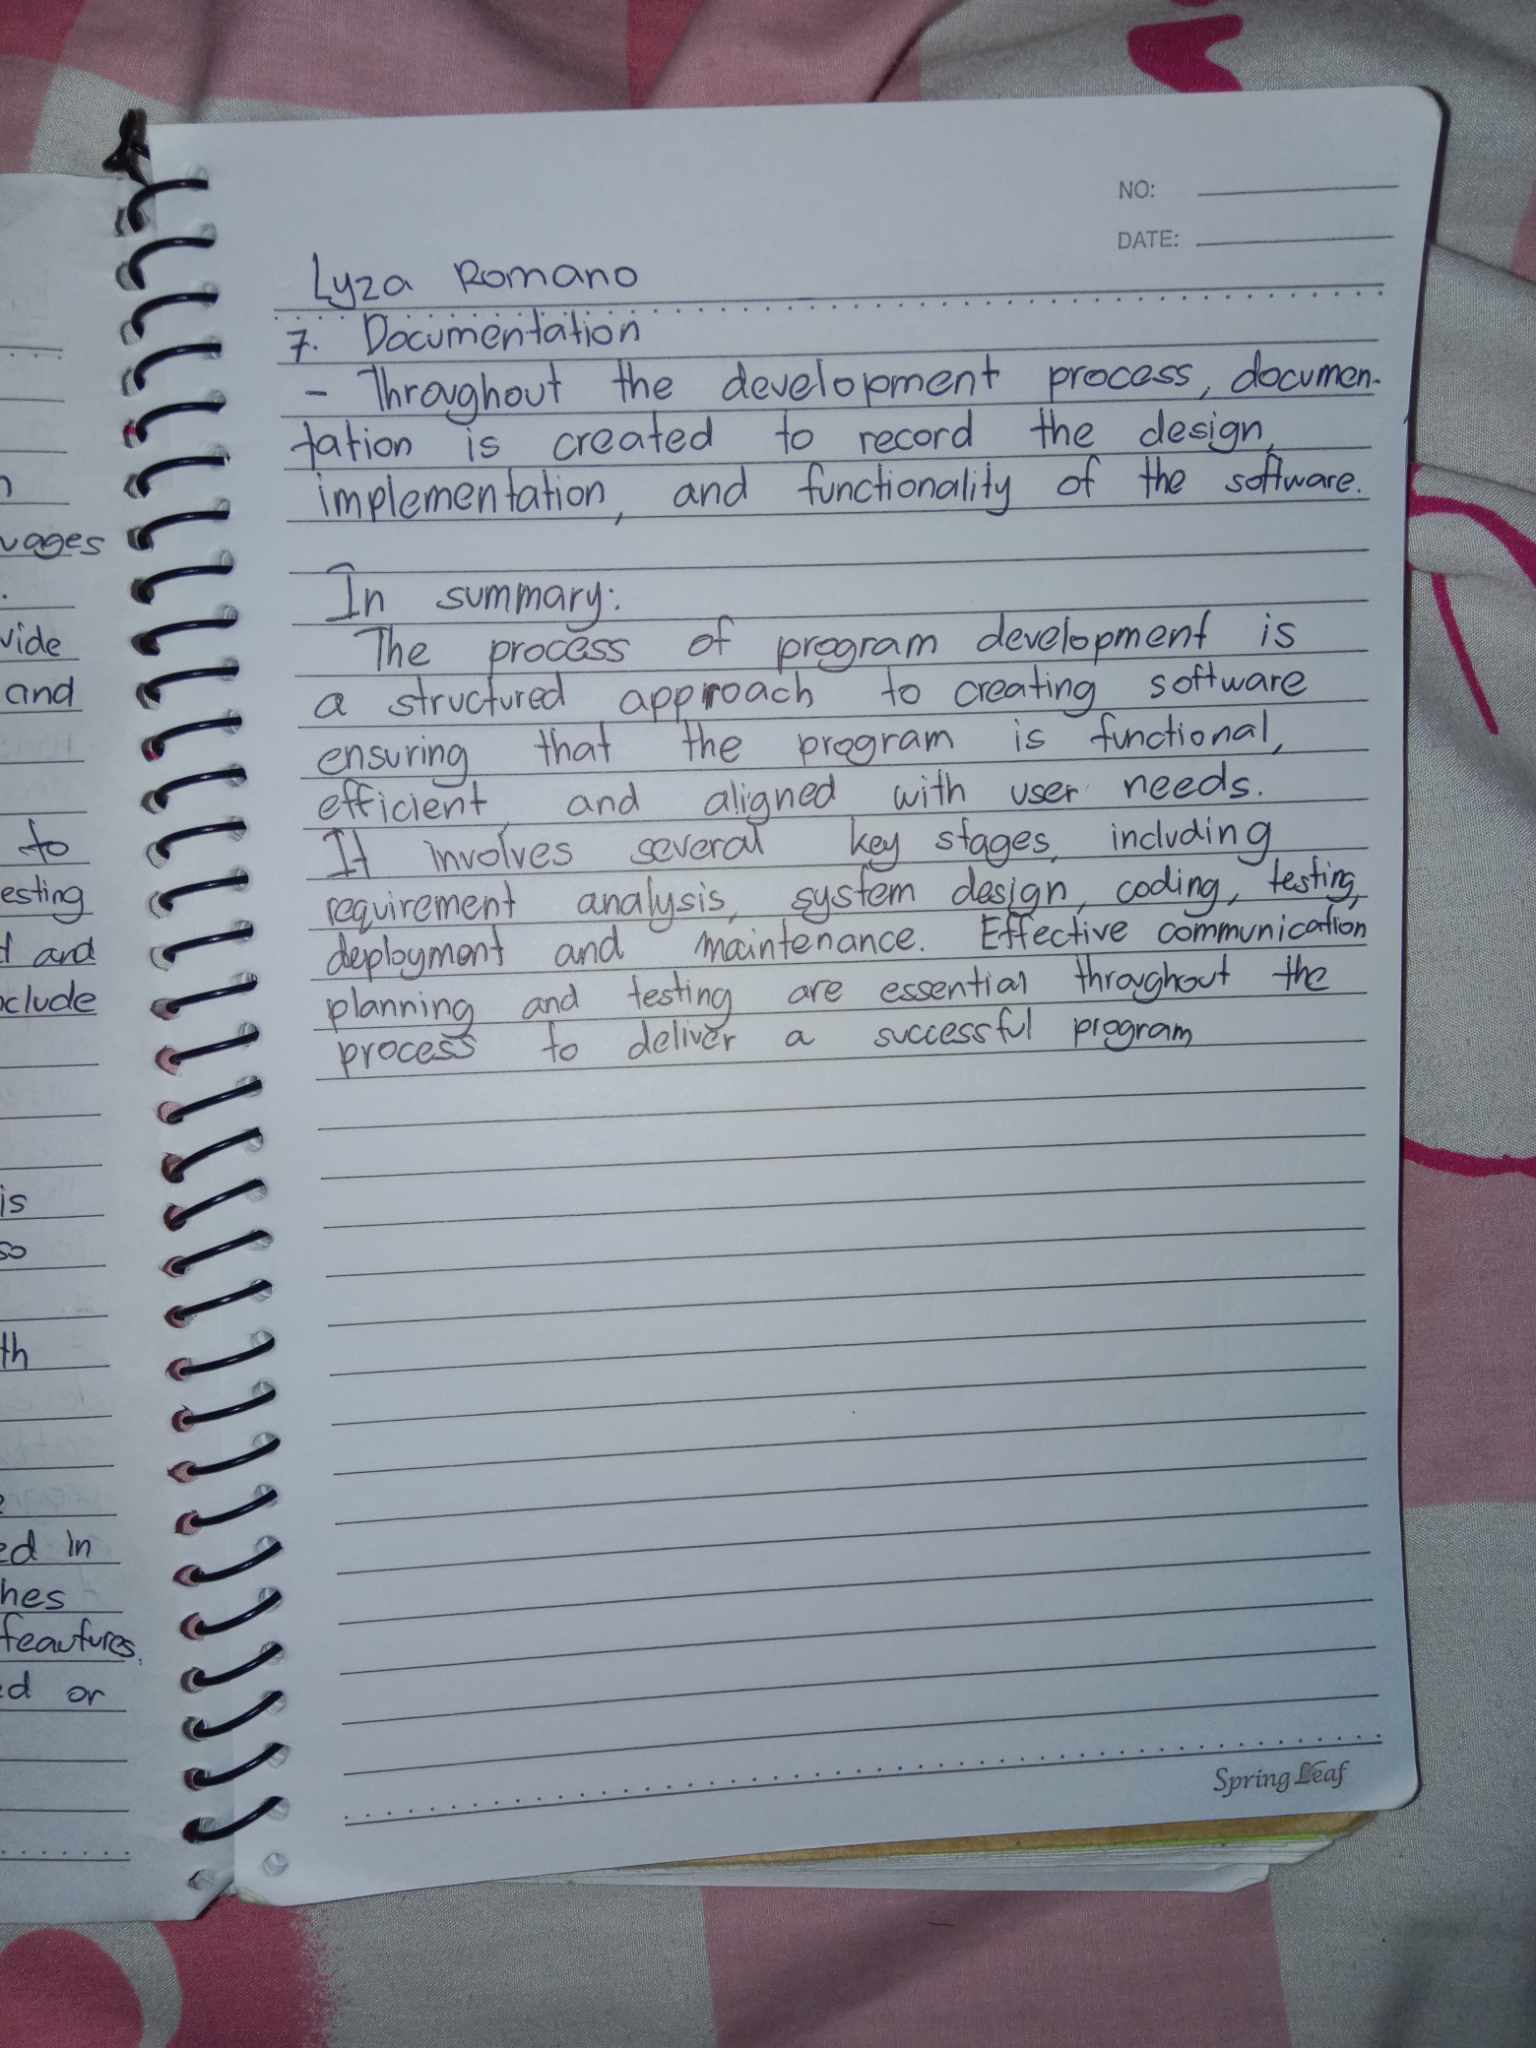 NO:
DATE:
Lyza Romano
7. Documentation
- Throughout the development process, documen-
tation is created to record the design,
implementation, and functionality of the software.
In summary:
The process of program development is
a structured approach to creating software
ensuring that the program is functional,
efficient, and aligned with user needs.
It involves several key stages, including
requirement analysis, system design, coding, testing,
deployment and maintenance. Effective communication
planning and testing are essential throughout the
process to deliver a successful program
Spring Leaf
vide
and
to
esting
and
is
so
th
ed in
hes
feautures.
ed or